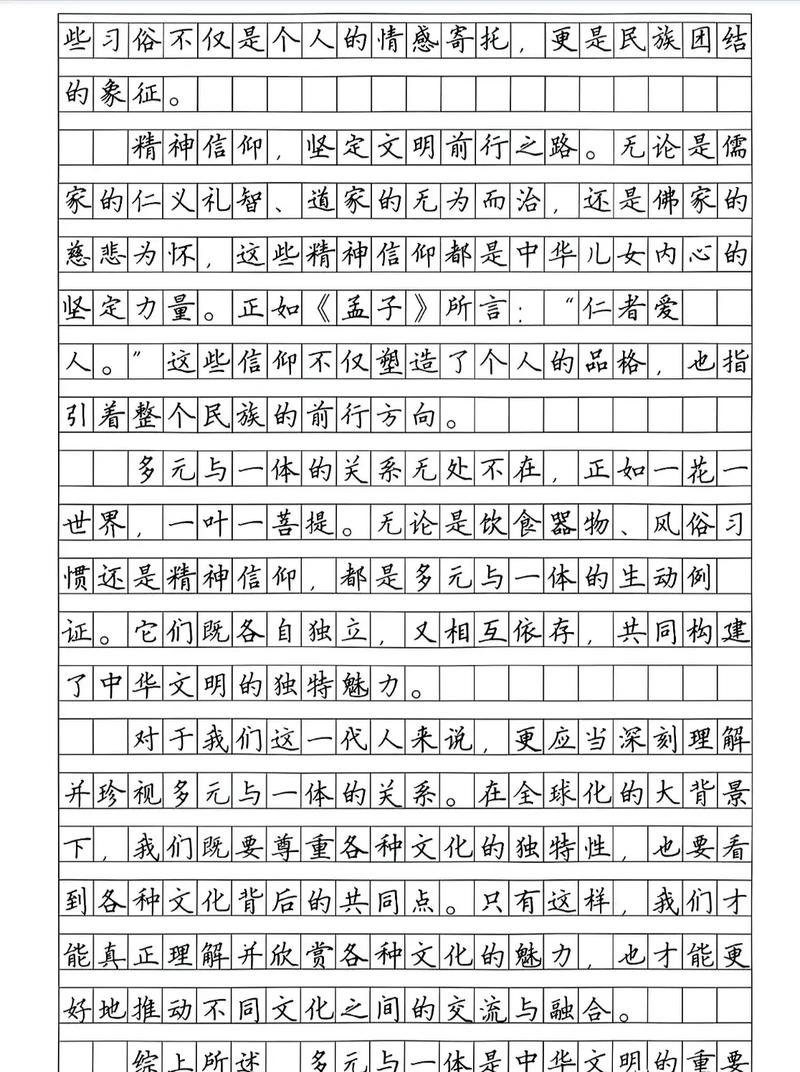 些习俗不仅是个人的情感寄托，更是民族团结
的象征。
精神信仰，坚定文明前行之路。无论是儒
家的仁义礼智、道家的无为而治，还是佛家的
慈悲为怀，这些精神信仰都是中华儿女内心的
坚定力量。正如《孟子》所言：“仁者爱
人。”这些信仰不仅塑造了个人的品格，也指
引着整个民族的前行方向。
多元与一体的关系无处不在，正如一花一
世界，一叶一菩提。无论是饮食器物、风俗习
惯还是精神信仰，都是多元与一体的生动例
证。它们既各自独立，又相互依存，共同构建
了中华文明的独特魅力。
对于我们这一代人来说，更应当深刻理解
并珍视多元与一体的关系。在全球化的大背景
下，我们既要尊重各种文化的独特性，也要看
到各种文化背后的共同点。只有这样，我们才
能真正理解并欣赏各种文化的魅力，也才能更
好地推动不同文化之间的交流与融合。
综上所述 多元与一体是中华文明的重要